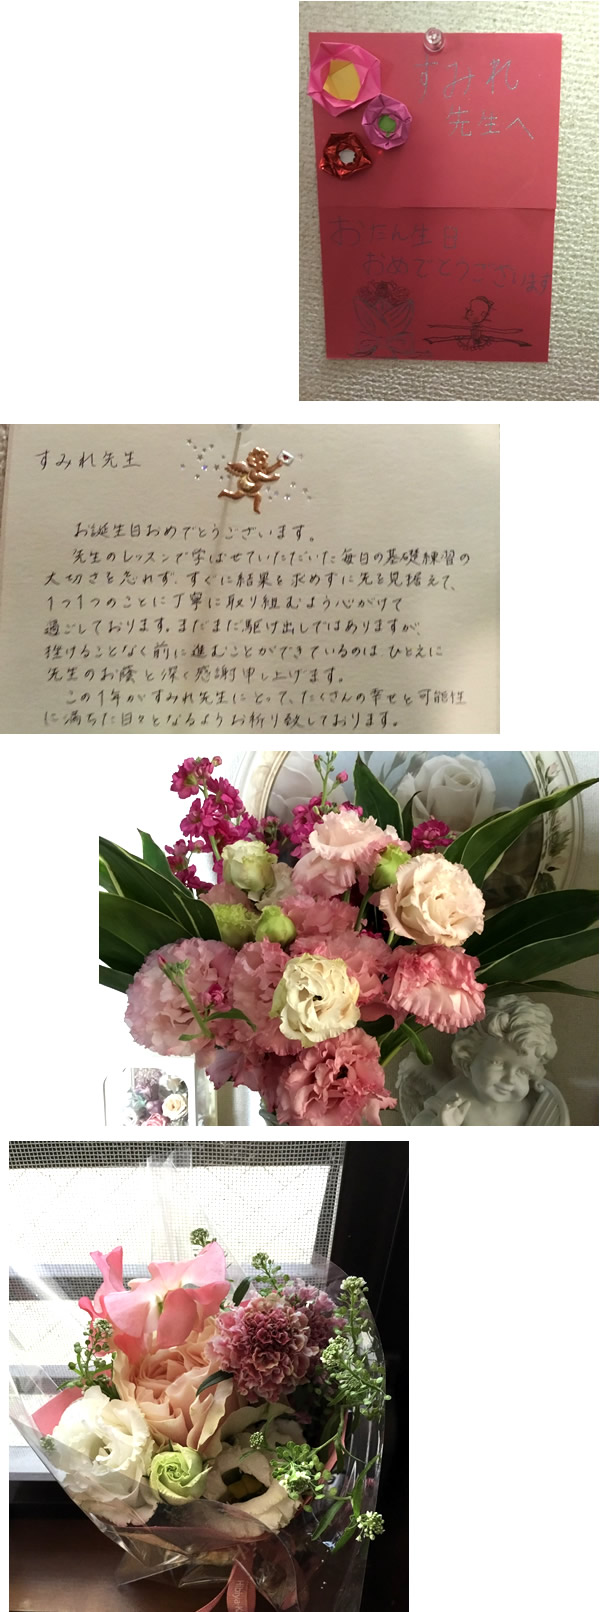 すみれ
先生へ
おたん生日
おめでとうございます
すみれ先生
お誕生日おめでとうございます。
先生のレッスンで学ばせていただいた毎日の基礎練習の
大切さを忘れず、すぐに結果を求めずに先を見据えて、
1つ1つのことに丁寧に取り組むよう心がけて
過ごしております。まだまだ駆け出しではありますが、
挫けることなく前に進むことができているのは、ひとえに
先生のお蔭と深く感謝申し上げます。
この1年がすみれ先生にとって、たくさんの幸せと可能性
に満ちた日々となるようお祈り致しております。